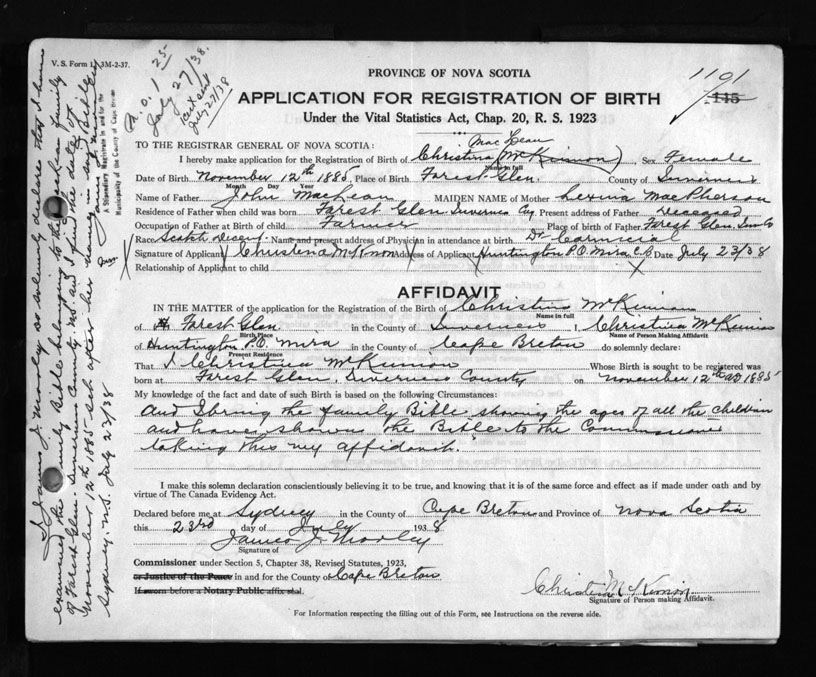 V. S. Form 1, 3M-2-37.
R. O. 1 25
July 27/38.
Rect sent
July 27/38
1101
445
PROVINCE OF NOVA SCOTIA
APPLICATION FOR REGISTRATION OF BIRTH
Under the Vital Statistics Act, Chap. 20, R. S. 1923
TO THE REGISTRAR GENERAL OF NOVA SCOTIA:
Mac Lean
I hereby make application for the Registration of Birth of Christina (McKinnon), Sex Female
Name in full
Date of Birth November 12th 1885, Place of Birth Forest Glen. County of Inverness
Month Day Year
Name of Father John MacLean MAIDEN NAME of Mother Lexina MacPherson
Residence of Father when child was born Forest Glen Inverness Co. Present address of Father deceased
Occupation of Father at Birth of Child Farmer Place of birth of Father Forest Glen, Inv Co
Race Scotch descent Name and present address of Physician in attendance at birth Dr
Signature of Applicant Christena McKinnon Address of Applicant Huntington P.O. Mira C.B Date July 23/38
Relationship of Applicant to child X
AFFIDAVIT
IN THE MATTER of the application for the Registration of the Birth of Christina McKinnon
Name in full
of Forest Glen in the County of Inverness I, Christina McKinnon
Birth Place Name of Person Making Affidavit
of Huntington P.O. Mira in the County of Cape Breton do solemnly declare:
Present Residence
That I Christina McKinnon Whose Birth is sought to be registered was
born at Forest Glen, Inverness County on November 12th AD 1885
My knowledge of the fact and date of such Birth is based on the following Circumstances:
and I bring the family Bible showing the ages of all the children
and have shown the Bible to the Commissioner
taking this my affidavit.
I make this solemn declaration conscientiously believing it to be true, and knowing that it is of the same force and effect as if made under oath and by
virtue of The Canada Evidence Act.
Declared before me at Sydney in the County of Cape Breton and Province of Nova Scotia
this 23rd day of July 1938
James J. Morley
Signature of
Commissioner under Section 5, Chapter 38, Revised Statutes, 1923,
or Justice of the Peace in and for the County of Cape Breton
If sworn before a Notary Public affix seal.
Christina McKinnon
Signature of Person making Affidavit.
For Information respecting the filling out of this Form, see Instructions on the reverse side.
I James J. Morley do solemnly declare that I have
examined the family Bible belonging to the McLean family
of Forest Glen. Inverness County and saw I find the date for
November 12th 1885 set after her name in said Bible
Sydney, N.S. July 23/38
James J. Morley
A Stipendiary Magistrate in and for the
Municipality of the County of Cape Breton